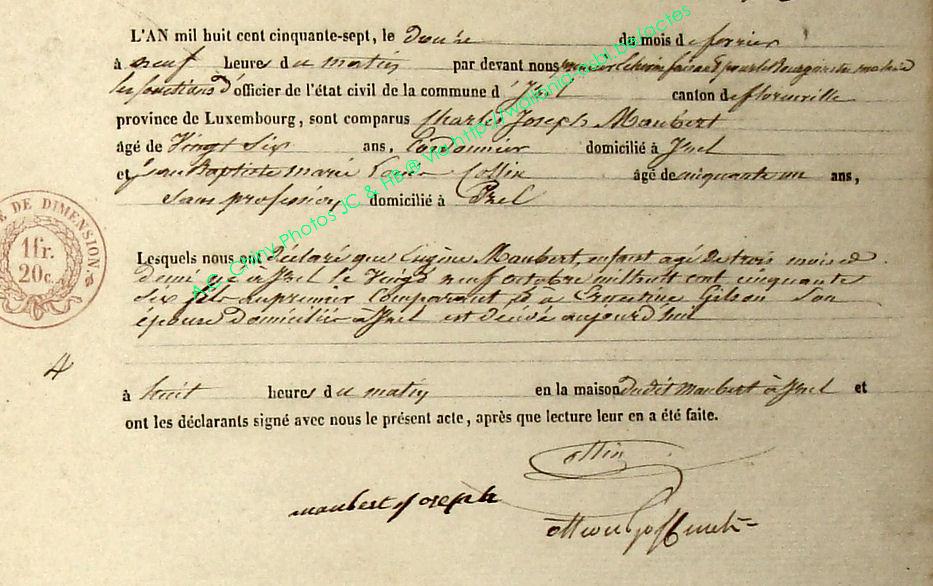 L'AN mil huit cent cinquante-sept, le Douze du mois de fevrier
à neuf heures du matin par devant nous
les fonctions d'officier de l'état civil de la commune d'Izel canton de florenville
province de Luxembourg, sont comparus Charles Joseph Maubert
âgé de Vingt Six ans, Cordonnier domicilié à Izel
et Jean Baptiste Marie Collin âgé de cinquante un ans,
Sans profession domicilié à Izel
Lesquels nous ont déclaré que Eugène Maubert, enfant agé de trois mois et
demi né à Izel le Vingt neuf octobre mil huit cent cinquante
six fils du premier Comparant et à Ernestine Gilson Son
épouse Domiciliée à Izel est décédé aujourd'hui
à huit heures du matin en la maison dudit Maubert à Izel et
ont les déclarants signé avec nous le présent acte, après que lecture leur en a été faite.
4
E DE DIMENSION.
1 fr.
20 c.
Collin
maubert joseph
A.C. Chiny Photos JC & HB @ via http://wallonia-gebl.be/actes